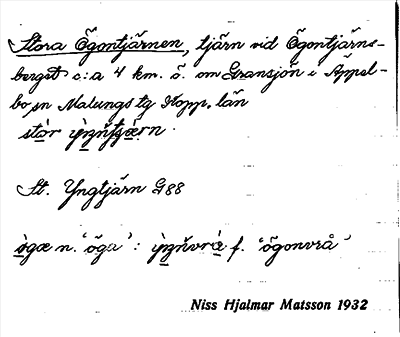 Stora Ögontjärnen, tjärn vid Ögontjärns-
berget c:a 4 km. ö. om Gransjön i Äppel-
bo sn Malungs tg Kopp. län
stór
St. Yngtjärn G88
n. "öga": f. "ögonvrå"
Niss Hjalmar Matsson 1932